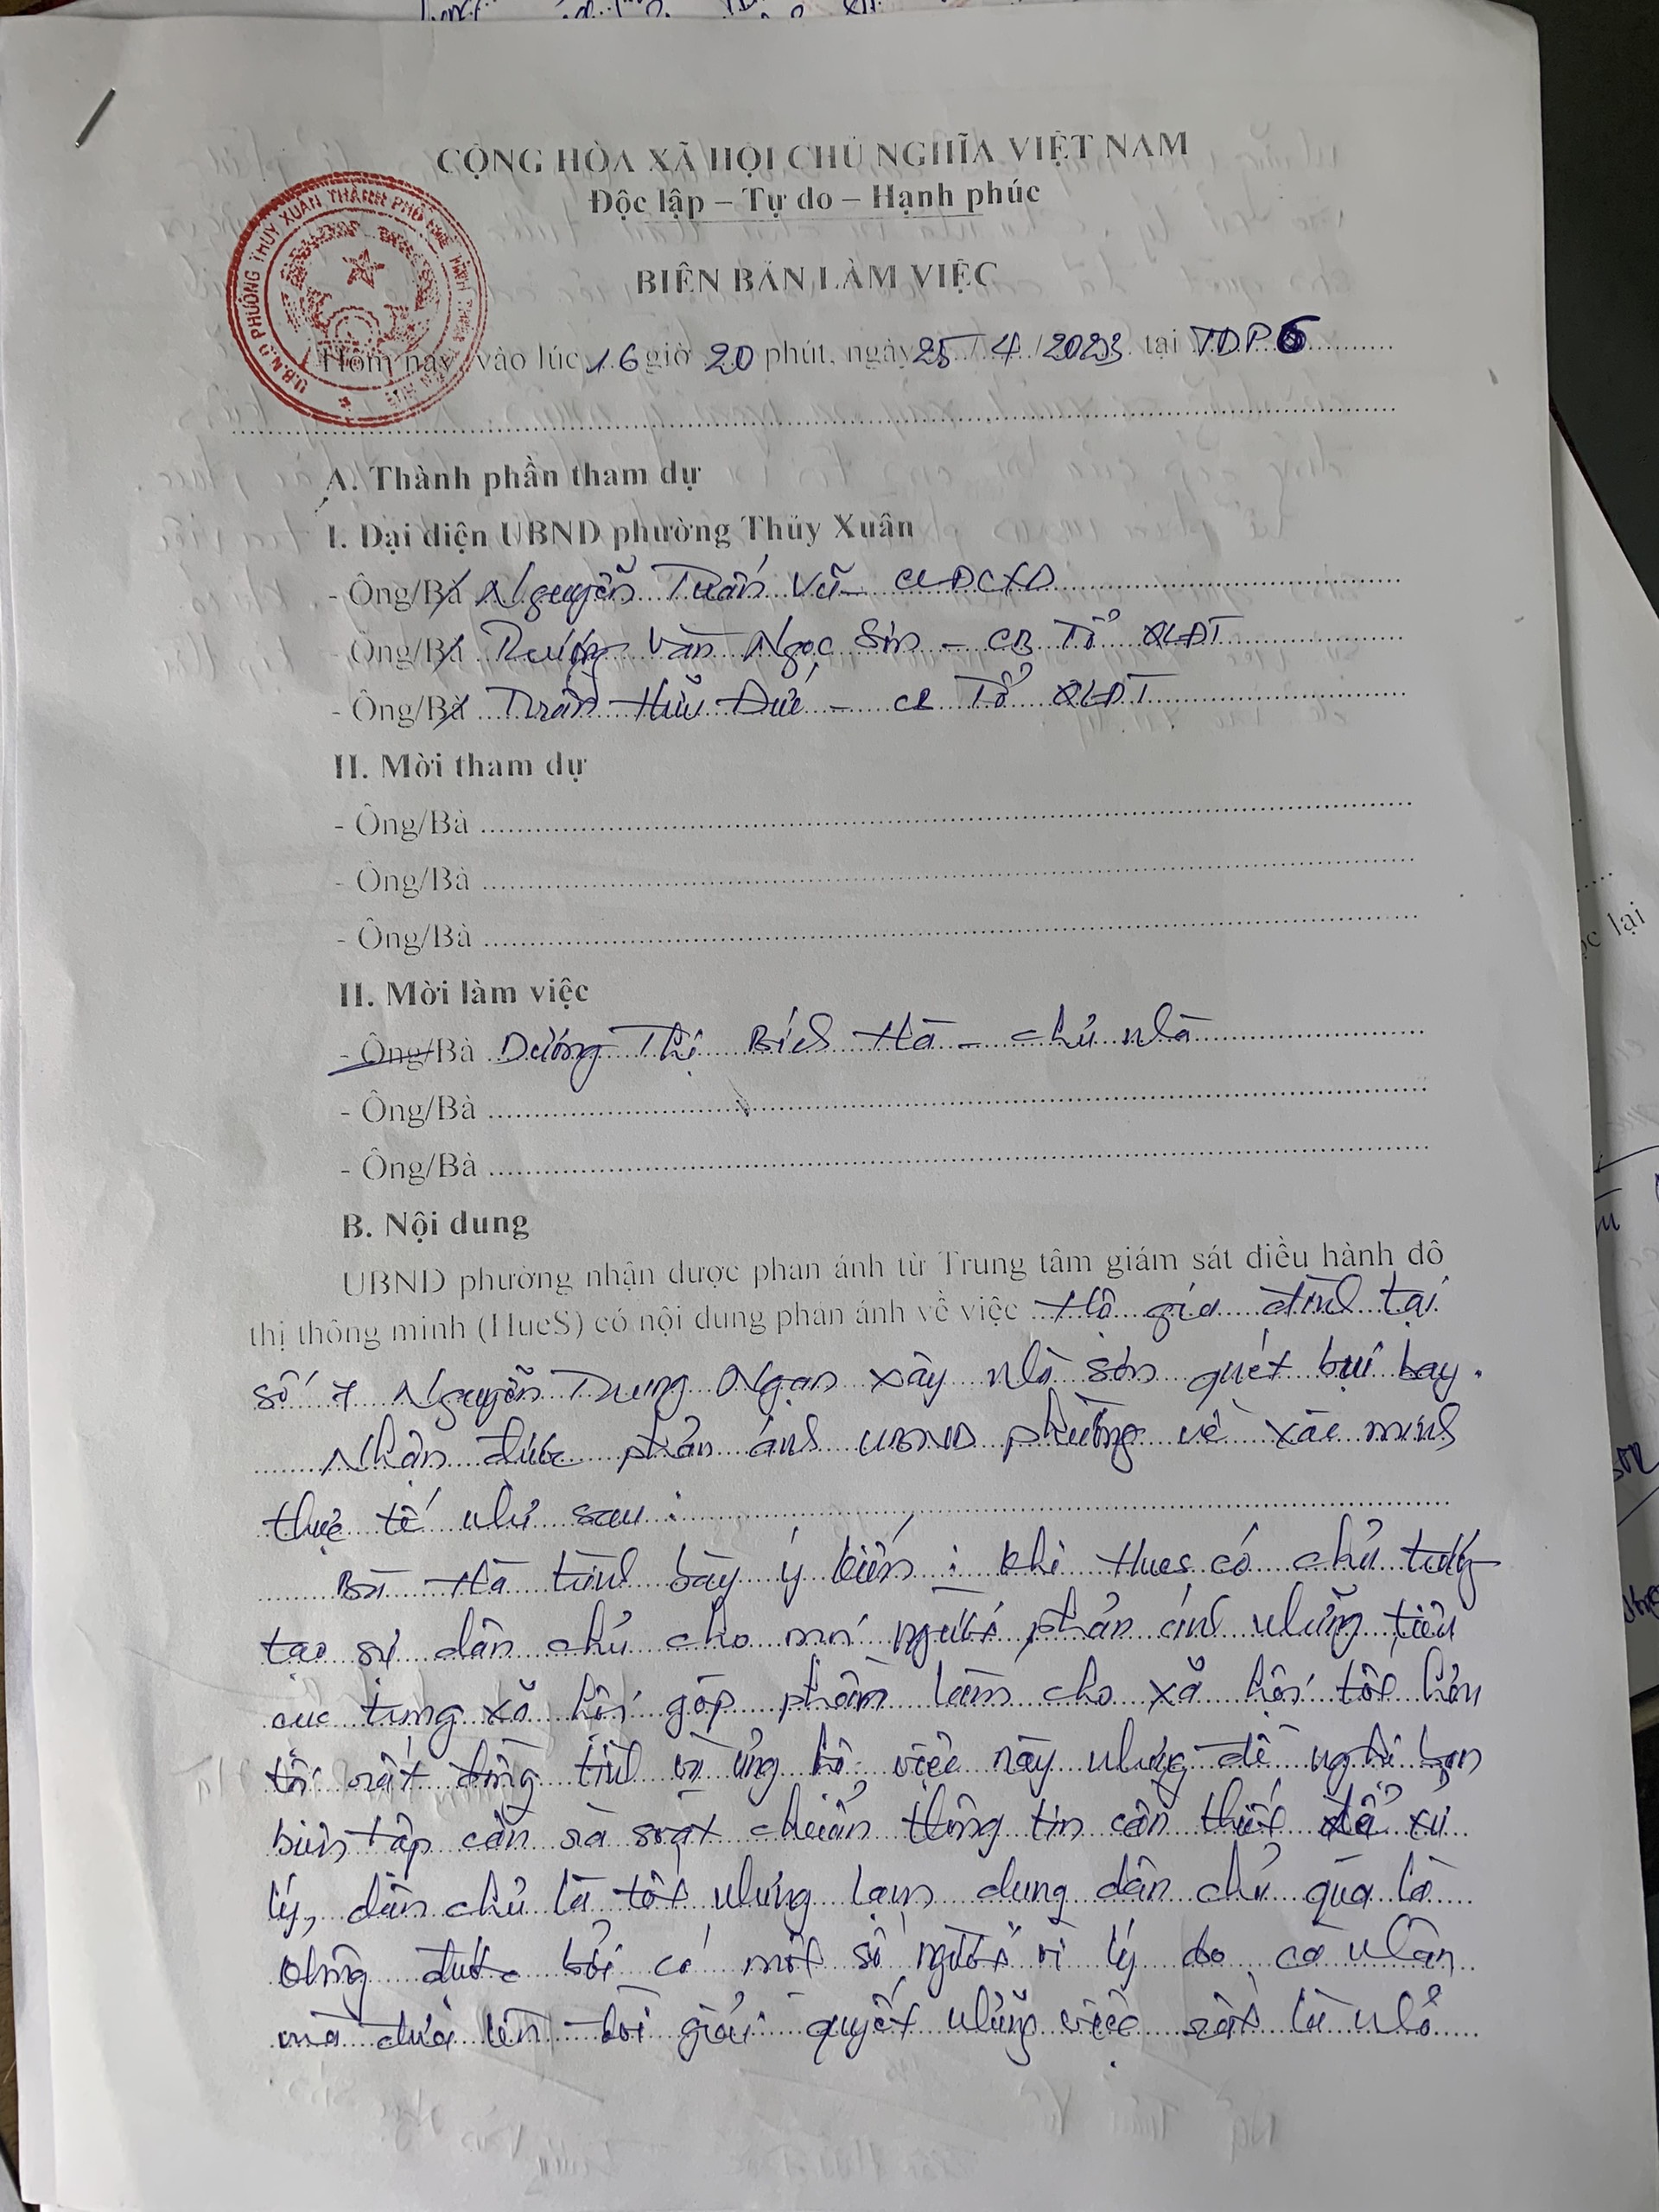 CỘNG HÒA XÃ HỘI CHỦ NGHĨA VIỆT NAM
Độc lập – Tự do – Hạnh phúc
BIÊN BẢN LÀM VIỆC
U.B.N.D PHƯỜNG THỦY XUÂN THÀNH PHỐ HUẾ TỈNH
Hôm nay, vào lúc 16 giờ 20 phút, ngày 25/4/2023 tại TDP 6
A. Thành phần tham dự
I. Đại diện UBND phường Thủy Xuân
- Ông/Bà Nguyễn Tuấn Vũ - CCĐCXD
- Ông/Bà Trương Văn Ngọc Sơn - CB Tổ QLĐT
- Ông/Bà Trần Hữu Đức - CB Tổ QLĐT
II. Mời tham dự
- Ông/Bà
- Ông/Bà
- Ông/Bà
II. Mời làm việc
- Ông/Bà Dương Thị Bích Hà - chủ nhà
- Ông/Bà
- Ông/Bà
B. Nội dung
UBND phường nhận được phản ánh từ Trung tâm giám sát điều hành đô
thị thông minh (HueS) có nội dung phản ánh về việc Hộ gia đình tại
số 7 Nguyễn Trung Ngạn xây nhà sơn quét bụi bay.
Nhận được phản ánh UBND phường về xác minh
thực tế như sau:
Bà Hà trình bày ý kiến: khi Hues có chủ trương
tạo sự dân chủ cho mọi người phản ánh những tiêu
cực trong xã hội góp phần làm cho xã hội tốt hơn
tôi rất đồng tình và ủng hộ việc này nhưng đề nghị ban
biên tập cần rà soát chuẩn thông tin cần thiết để xử
lý, dân chủ là tốt nhưng lạm dụng dân chủ quá là
không được bởi có một số người vì lý do cá nhân
mà đưa lên đòi giải quyết những việc rất là nhỏ